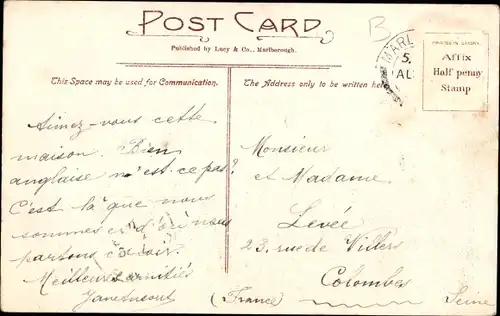 POST CARD
Published by Lucy & Co., Marlborough.
B
MARL
5
AU
PRINTED IN SAXONY.
Affix
Half penny
Stamp
This Space may be used for Communication.
The Address only to be written here
Aimez-vous cette
maison. Bien
anglaise n'est-ce pas?
C'est là que nous
sommes et d'où nous
partons ce soir.
Meilleures amitiés
Monsieur
et Madame
Levée
23, rue de Villers
Colombes
(France) Seine